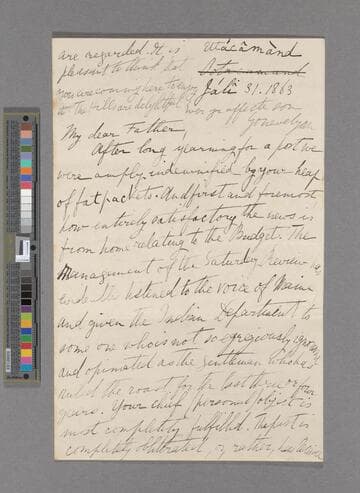 are regarded. It is
pleasant to think that
you are coming here to enjoy
to the hills and delightful
Utācāmànd
Ootacamund
Jūli 31. 1863
ever yr affecte son
G. Trevelyan
My dear Father,
After long yearning for a post we
were amply indemnified by your heap
of fat packets. And first and foremost
how entirely satisfactory the news is
from home relating to the Budget. The
Management of the Saturday Review
listened to the voice of
and given the Indian Department to
some one who is not so egregiously ignorant
and opinionated as the gentleman who has
ruled the roast for the last three or four
years. Your chief (personal) object is
most completely fulfilled. The past is
completely obliterated, or rather,